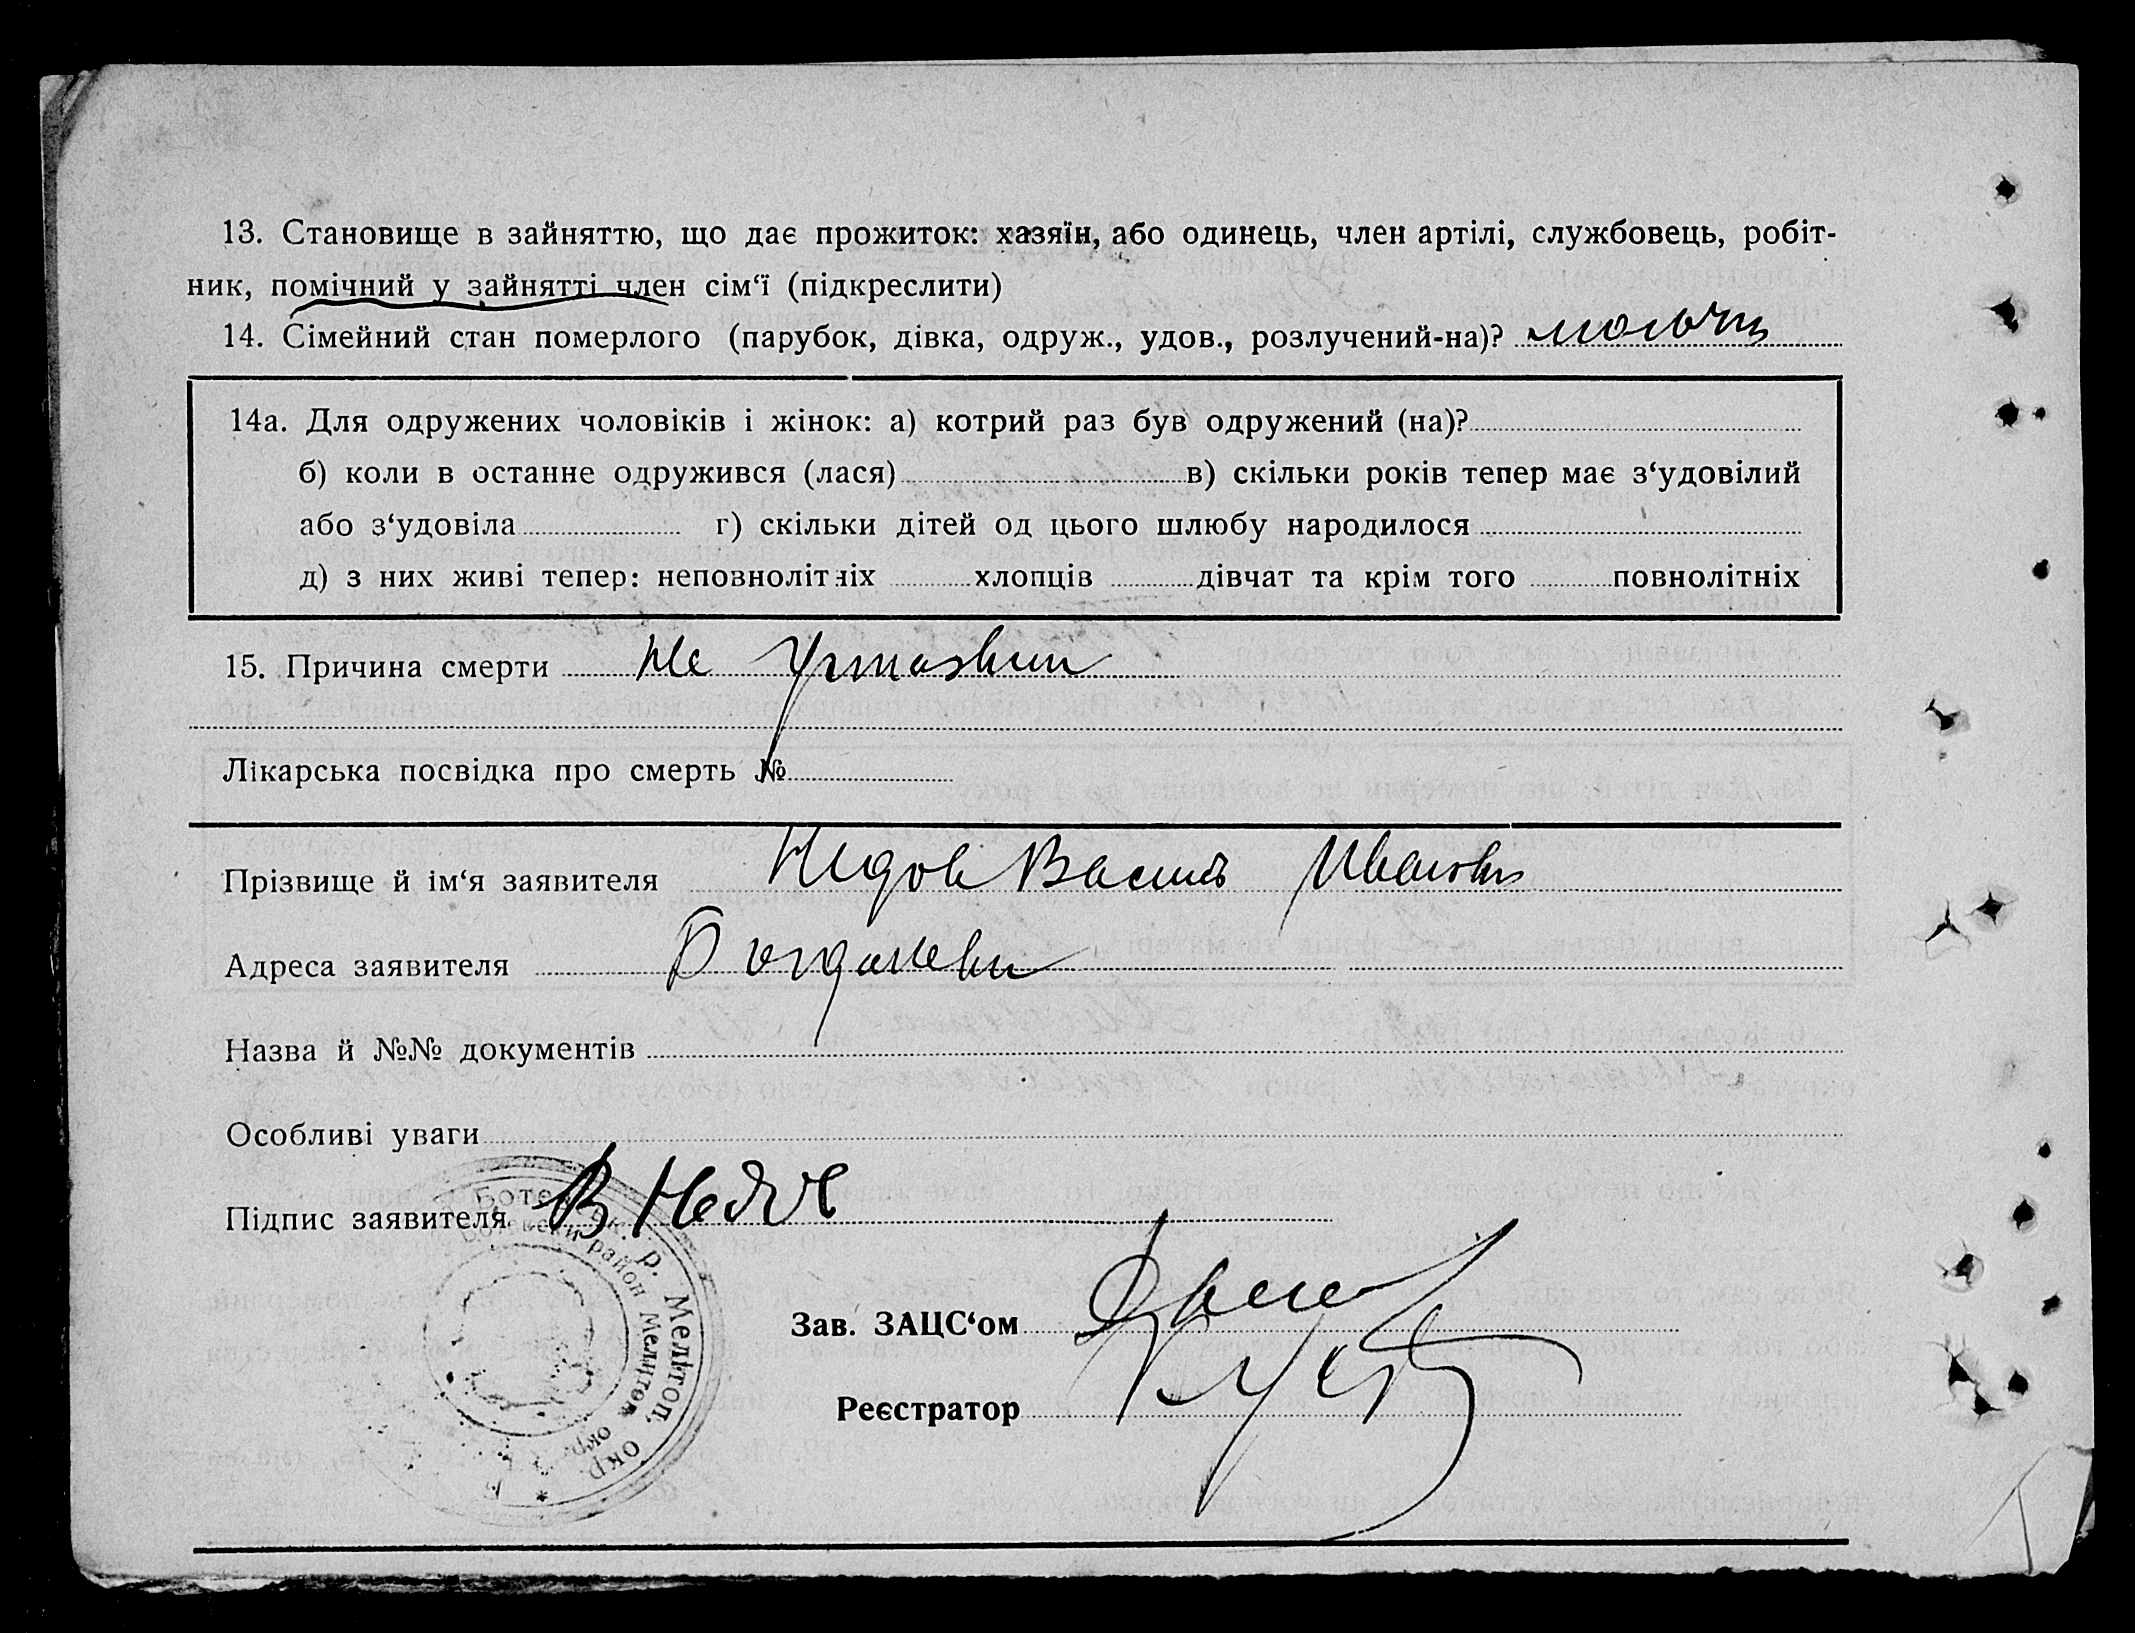 13. Становище в зайняттю, що дає прожиток: хазяїн, або одинець, член артілі, службовець, робіт-
ник, помічний у зайнятті член сім‘ї (підкреслити)
14. Сімейний стан померлого (парубок, дівка, одруж., удов., розлучений-на)?
14а. Для одружених чоловіків і жінок: а) котрий раз був одружений (на)?
б) коли в останне одружився (лася) в) скільки років тепер має з‘удовілий
або з‘удовіла г) скільки дітей од цього шлюбу народилося
д) з них живі тепер: неповнолітніх хлопців дівчат та крім того повнолітніх
15. Причина смерти Не
Лікарська посвідка про смерть №
Прізвище й ім‘я заявителя Недов Василь Иванович
Адреса заявителя Богдановки
Назва й №№ документів
Особливі уваги
Підпис заявителя В Недов
Зав. ЗАЦС‘ом
Реєстратор
р. Мелітоп. окр.
район Мелітоп. окр.